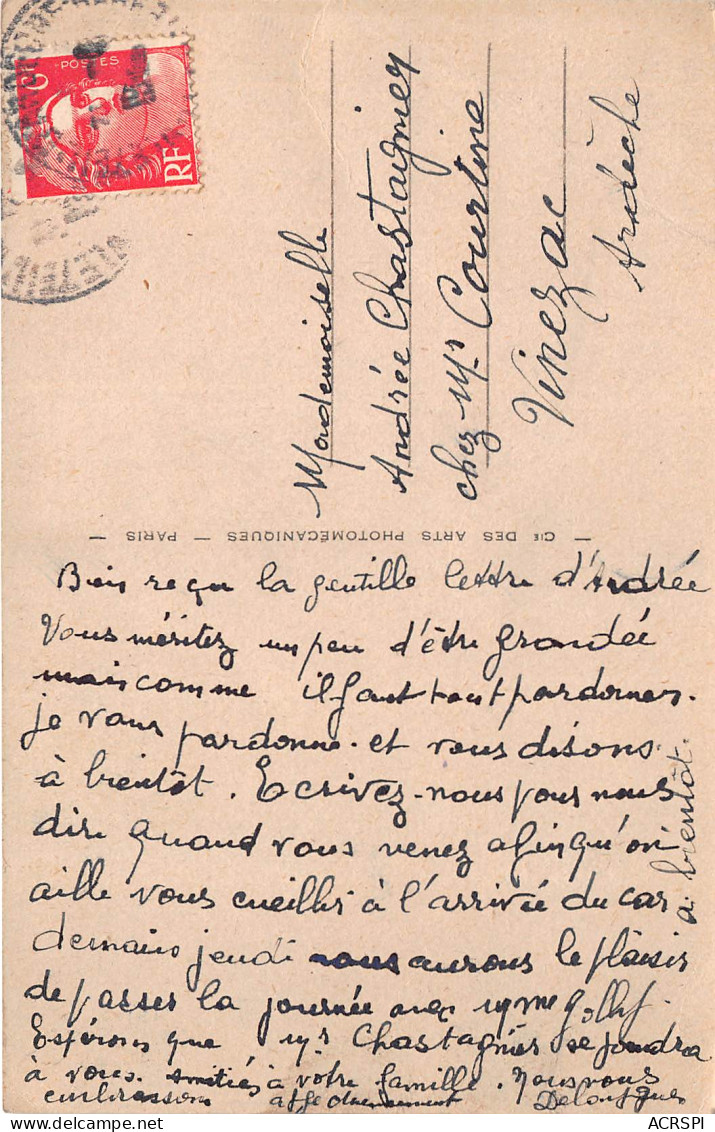 POSTES
6
RF
Mademoiselle
Andrée Chastagnier
chez Mr Courtine
Vinezac
Ardèche
— CIE DES ARTS PHOTOMÉCANIQUES — PARIS —
Bien reçu la gentille lettre d'Andrée
Vous méritez un peu d'être grondée
mais comme il faut tout pardonner.
je vous pardonne. et vous disons
à bientôt. Ecrivez-nous pour nous
dire quand vous venez afin qu'on
aille vous cueillir à l'arrivée du car
demain jeudi nous aurons le plaisir
de passer la journée avec Mme
Espérons que Mr Chastagnier se joindra
à vous. Amitiés à votre famille. Nous vous
embrassons affectueusement
à bientôt.
ACRSPI